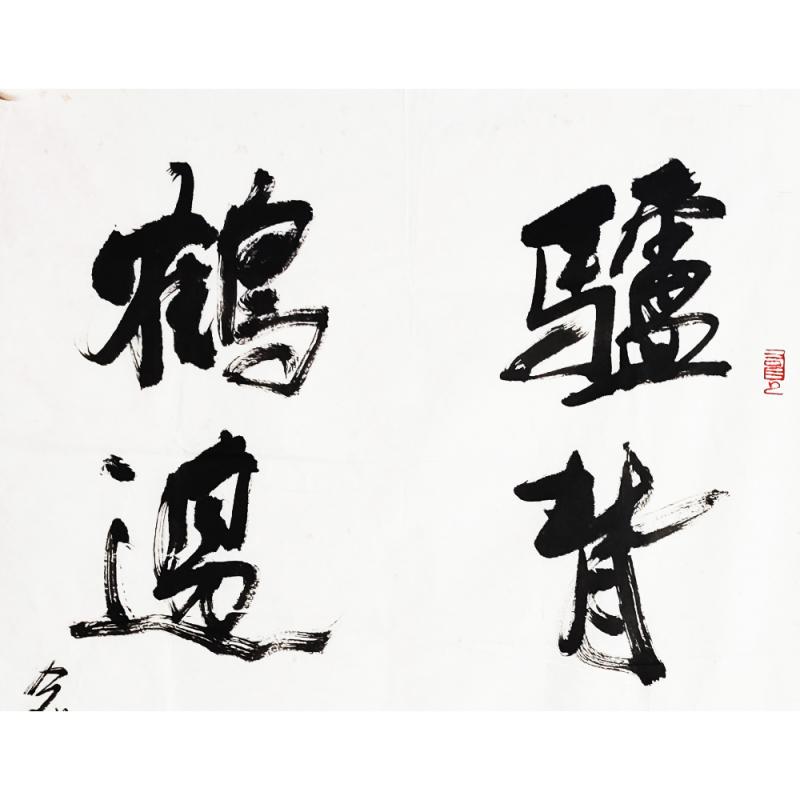 驢背
鶴邊